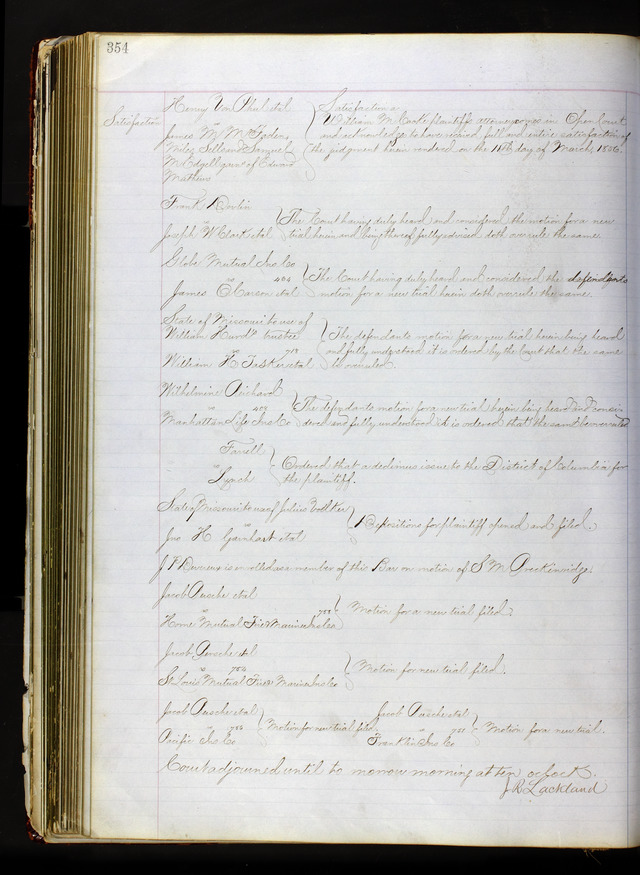 354
Satisfaction
Henry Von Phul et al
vs
James M McFaden,
Miles Sellers & Samuel
McEdgell grat of Edward
Mathews
Satisfaction
William M. plaintiffs attorney comes in Open Court
and acknowledges to have received full and entire satisfaction of
the judgment herein rendered on the 11th day of March, 1856.
Frank
vs
Joseph W Clark et al
The Court having duly heard and considered the motion for a new
trial herein and being thereof fully advised doth overrule the same.
Globe Mutual Ins Co
vs 404
James O Carson et al
The Court having duly heard and considered the defendants
motion for a new trial herein doth overrule the same.
State of Missouri to use of
William Hurd trustee
vs 713
William H. et al
The defendants motion for a new trial herein being heard
and fully understood it is ordered by the Court that the same
be overruled
Wilhelmine Richard
vs 402
Manhattan Life Ins Co
The defendants motion for a new trial herein being heard and consid
dered and fully understood it is ordered that the same be overruled
Farrell
vs
Lynch
Ordered that a dedimus issue to the District of Columbia for
the plaintiff.
State of Missouri to use of Julius
vs
Jno H Garnhart et al
Depositions for plaintiff opened and filed.
J is enrolled as a member of this Bar on motion of S M Breckenridge.
Jacob et al
vs 753
Home Mutual Fire & Marine Ins Co
Motion for a new trial filed.
Jacob et al
vs 754
St Louis Mutual Fire & Marine Ins Co
Motion for new trial filed.
Jacob et al
755
Pacific Ins Co
Motion for new trial filed
Jacob et al
vs
Franklin Ins Co
Motion for a new trial.
Court adjourned until to morrow morning at ten o clock.
J R Lackland